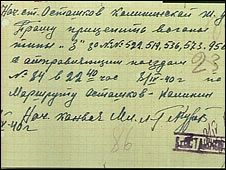 Нач. ст. Осташков Калининской ж. д.
Прошу прицепить вагоны
типа "З" за №№ 522. 514, 536, 573.
к отправляющимся поездам 23
№ 84 в 22 40 час 8/IV-40 г. по
маршруту Осташков-Калинин
Нач. конвоя Мл. л-т
40 г. 86